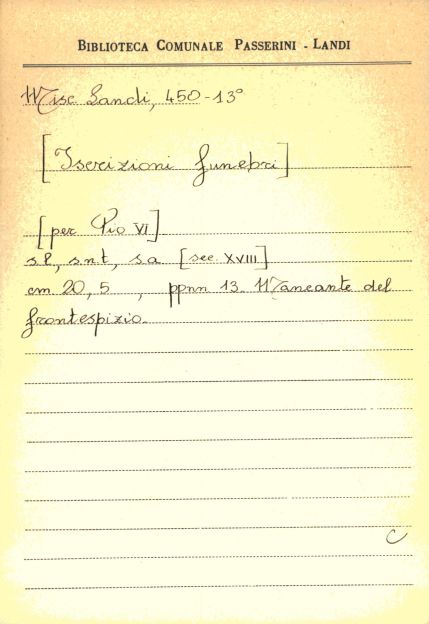 BIBLIOTECA COMUNALE PASSERINI - LANDI
Misc Landi, 450-13°
[Iscrizioni funebri]
[per Pio VI]
s.l, s.n.t, s.a [sec. XVIII]
cm 20, 5 , ppnn 13. Mancante del
frontespizio.
C